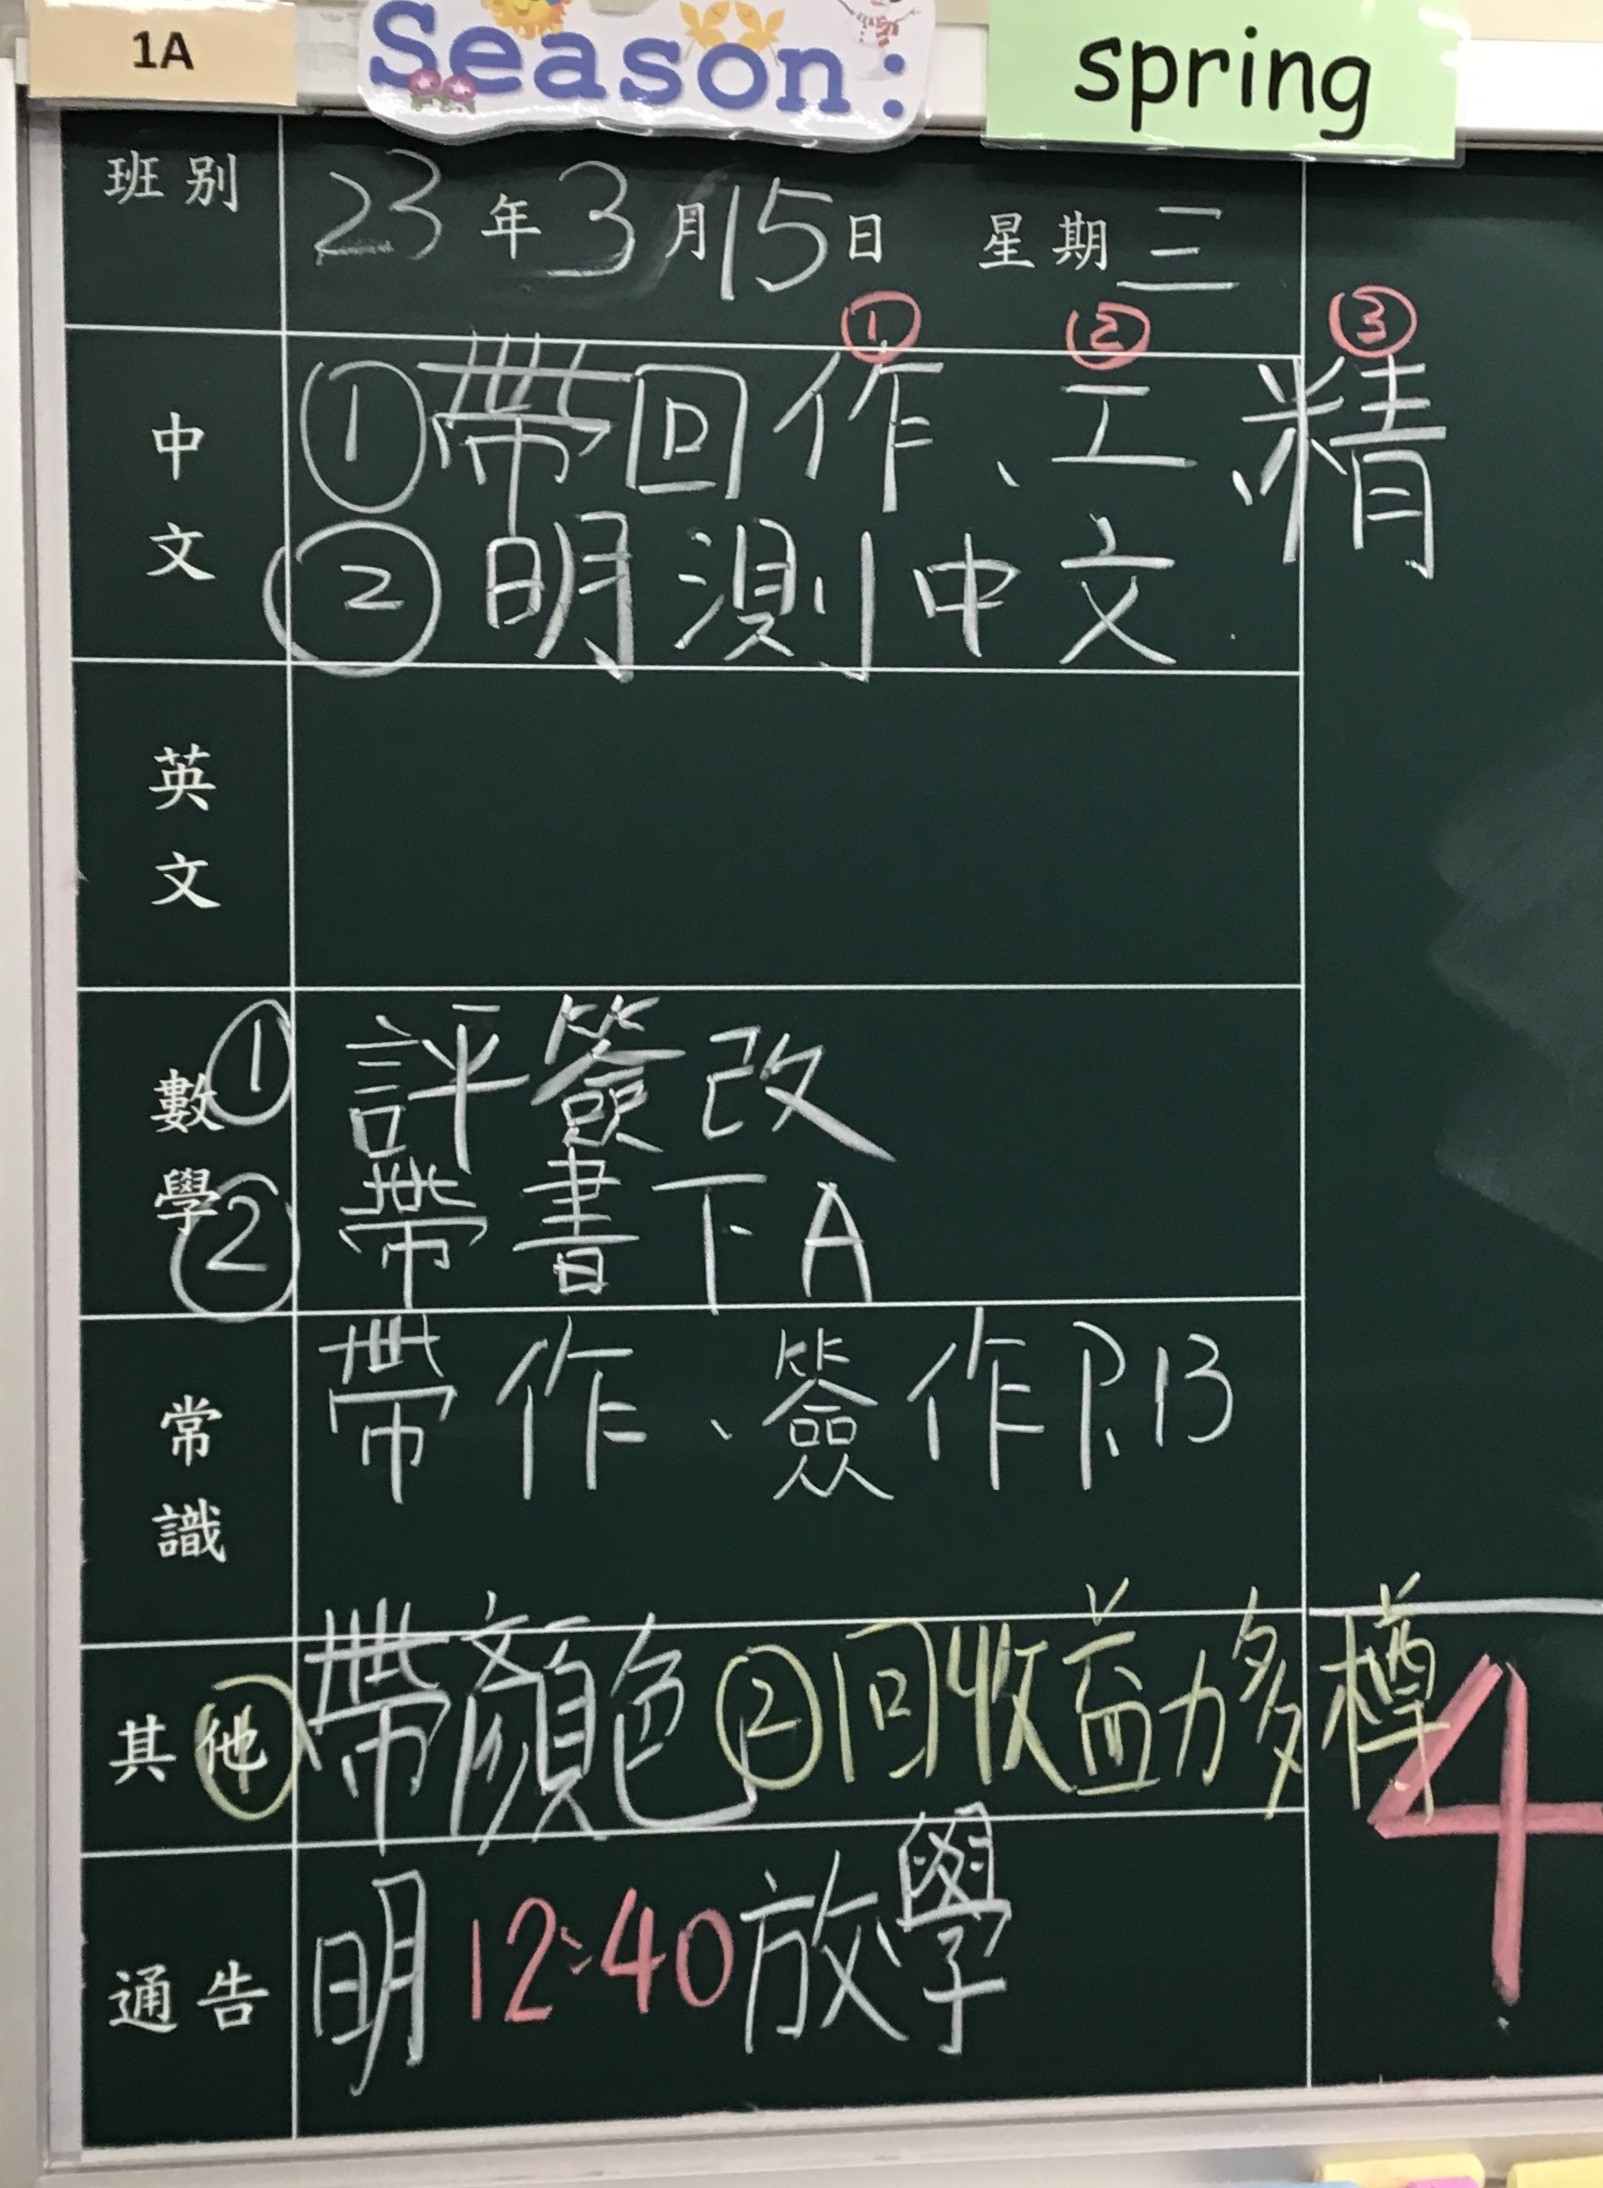 1A
Season:
spring
班別 23年3月15日 星期三
① ② ③
中文 ①帶回作、工、精
②明測中文
英文
數學 ①評簽改
②帶書下A
常識 帶作、簽作P.13
其他 ①帶顏色②回收益力多樽
4
通告 明12:40放學